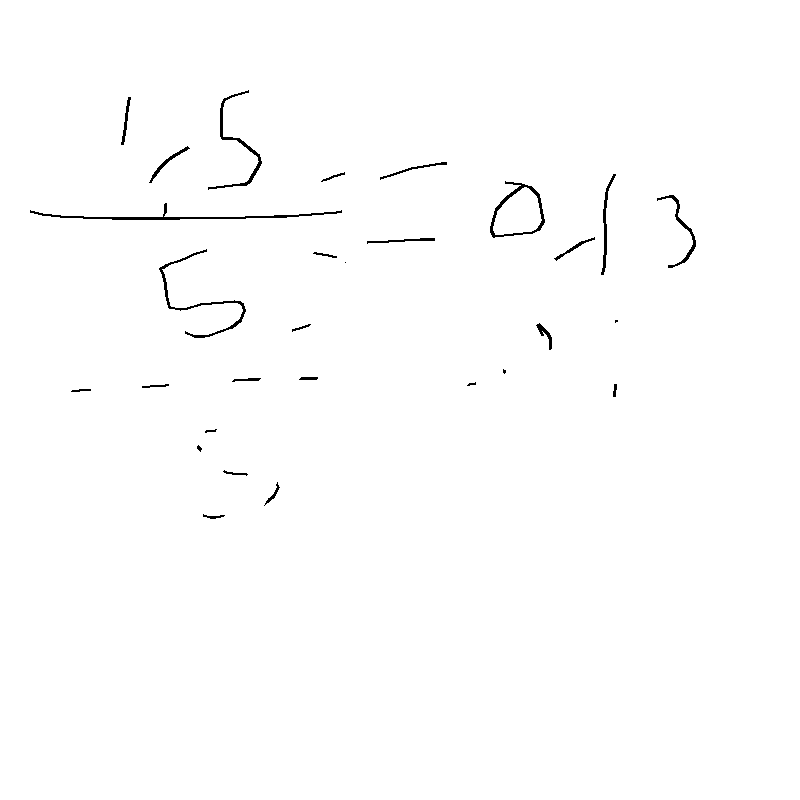 1,5
5
= 0,13